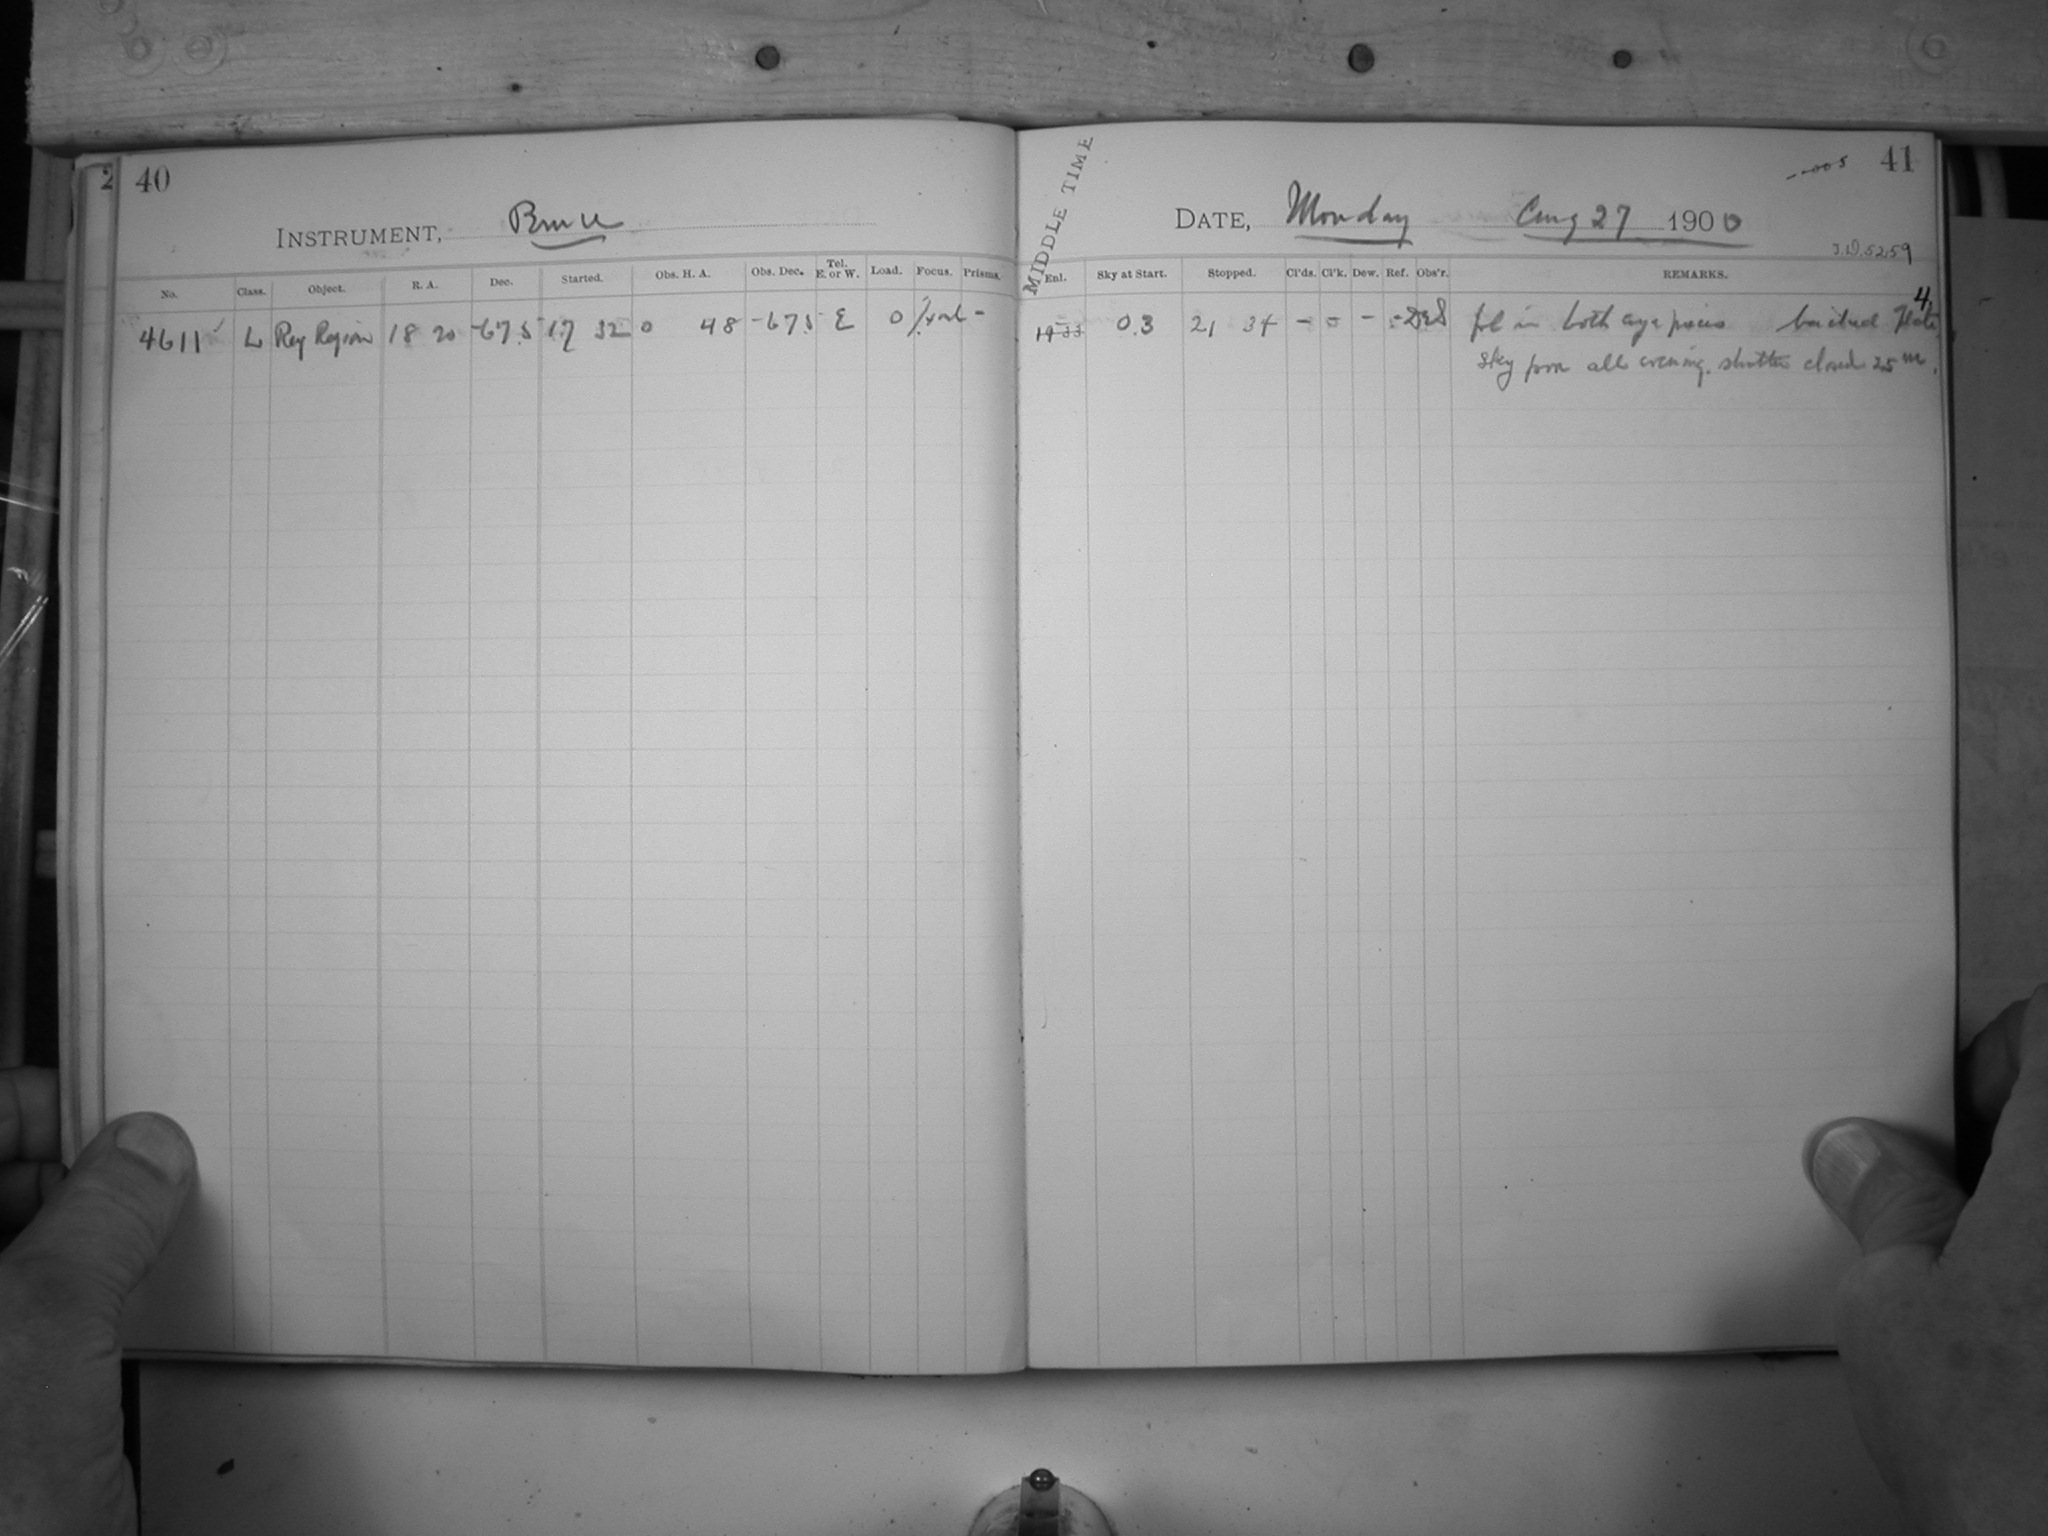 2 40
INSTRUMENT, Bruce
No. Class. Object. R. A. Dec. Started. Obs. H. A. Obs. Dec. Tel. E. or W. Load. Focus. Prisms.
4611 L Reg Region 18 20 -67.5 17 32 0 48 -67.5 E 0 -
MIDDLE TIME
41
DATE, Monday Aug 27 1900
J.D. 5259
Enl. Sky at Start. Stopped. Cl'ds. Cl'k. Dew. Ref. Obs'r. REMARKS.
19 33 0.3 21 34 - - - - in both eye pieces Plate 4.
Sky poor all evening. shutter closed 25m.